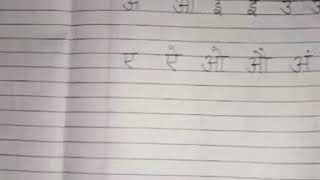 अ आ इ ई उ ऊ
ए ऐ ओ औ अं